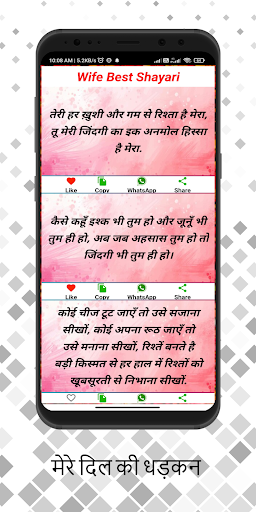 10:08 AM | 5.2KB/s
Wife Best Shayari
तेरी हर ख़ुशी और गम से रिश्ता है मेरा,
तू मेरी जिंदगी का इक अनमोल हिस्सा
है मेरा.
Like Copy WhatsApp Share
कैसे कहूँ इश्क भी तुम हो और जूनूँ भी
तुम ही हो, अब जब अहसास तुम हो तो
जिंदगी भी तुम ही हो।
Like Copy WhatsApp Share
कोई चीज टूट जाएँ तो उसे सजाना
सीखों, कोई अपना रूठ जाएँ तो
उसे मनाना सीखों, रिश्तें बनते है
बड़ी किस्मत से हर हाल में रिश्तों को
खूबसूरती से निभाना सीखों.
Like Copy WhatsApp Share
मेरे दिल की धड़कन